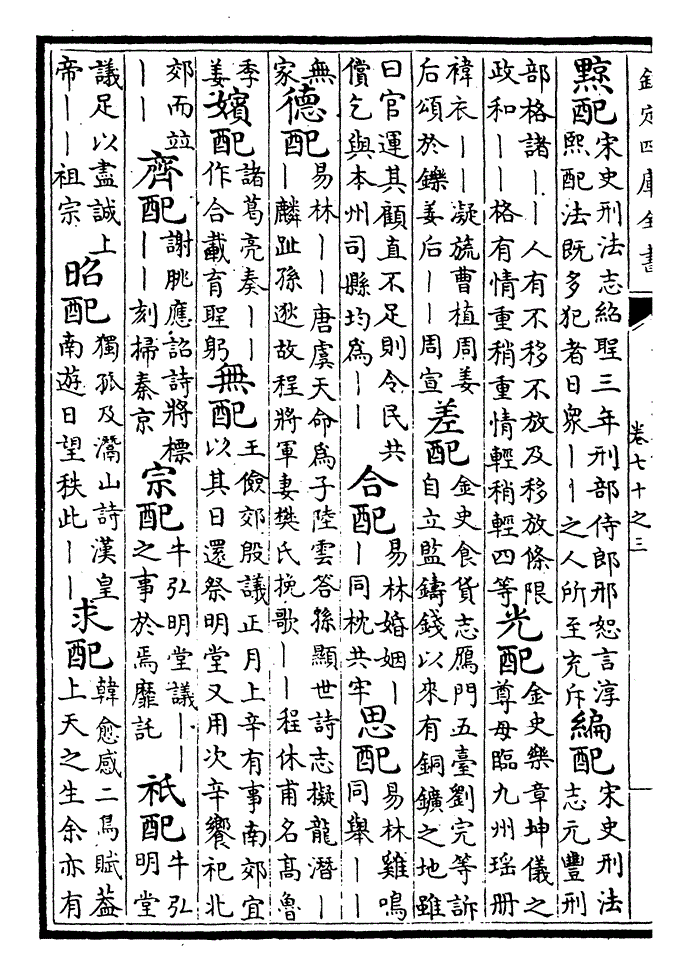 欽定四庫全書
卷七十之三
黥配宋史刑法志紹聖三年刑部侍郎邢恕言淳熙配法既多犯者日衆丨丨之人所至充斥編配宋史刑法志元豐刑
部格諸丨丨人有不移不放及移放條限政和丨丨格有情重稍重情輕稍輕四等光配金史樂章坤儀之尊母臨九州瑶册
褘衣丨丨凝旒曹植周姜后頌於鑠姜后丨丨周宣差配金史食貨志鴈門五臺劉完等訴自立監鑄錢以來有銅鑛之地雖
曰官運其顧直不足則令民共償乞與本州司縣均為丨丨合配易林婚姻丨丨同枕共牢思配易林雞鳴同舉丨丨
無家德配易林丨丨唐虞天命為子陸雲答孫顯世詩志擬龍潛丨丨麟趾孫逖故程將軍妻樊氏挽歌丨丨程休甫名高魯
季姜嬪配諸葛亮奏丨丨作合載育聖躬無配王儉郊殷議正月上辛有事南郊宜以其日還祭明堂又用次辛饗祀北
郊而竝丨丨齊配謝朓應詔詩將標丨丨刻掃秦京宗配牛弘明堂議丨丨之事於焉靡託祇配牛弘明堂
議足以盡誠上帝丨丨祖宗昭配獨孤及灊山詩漢皇南遊日望秩此丨丨求配韓愈感二鳥賦葢上天之生余亦有